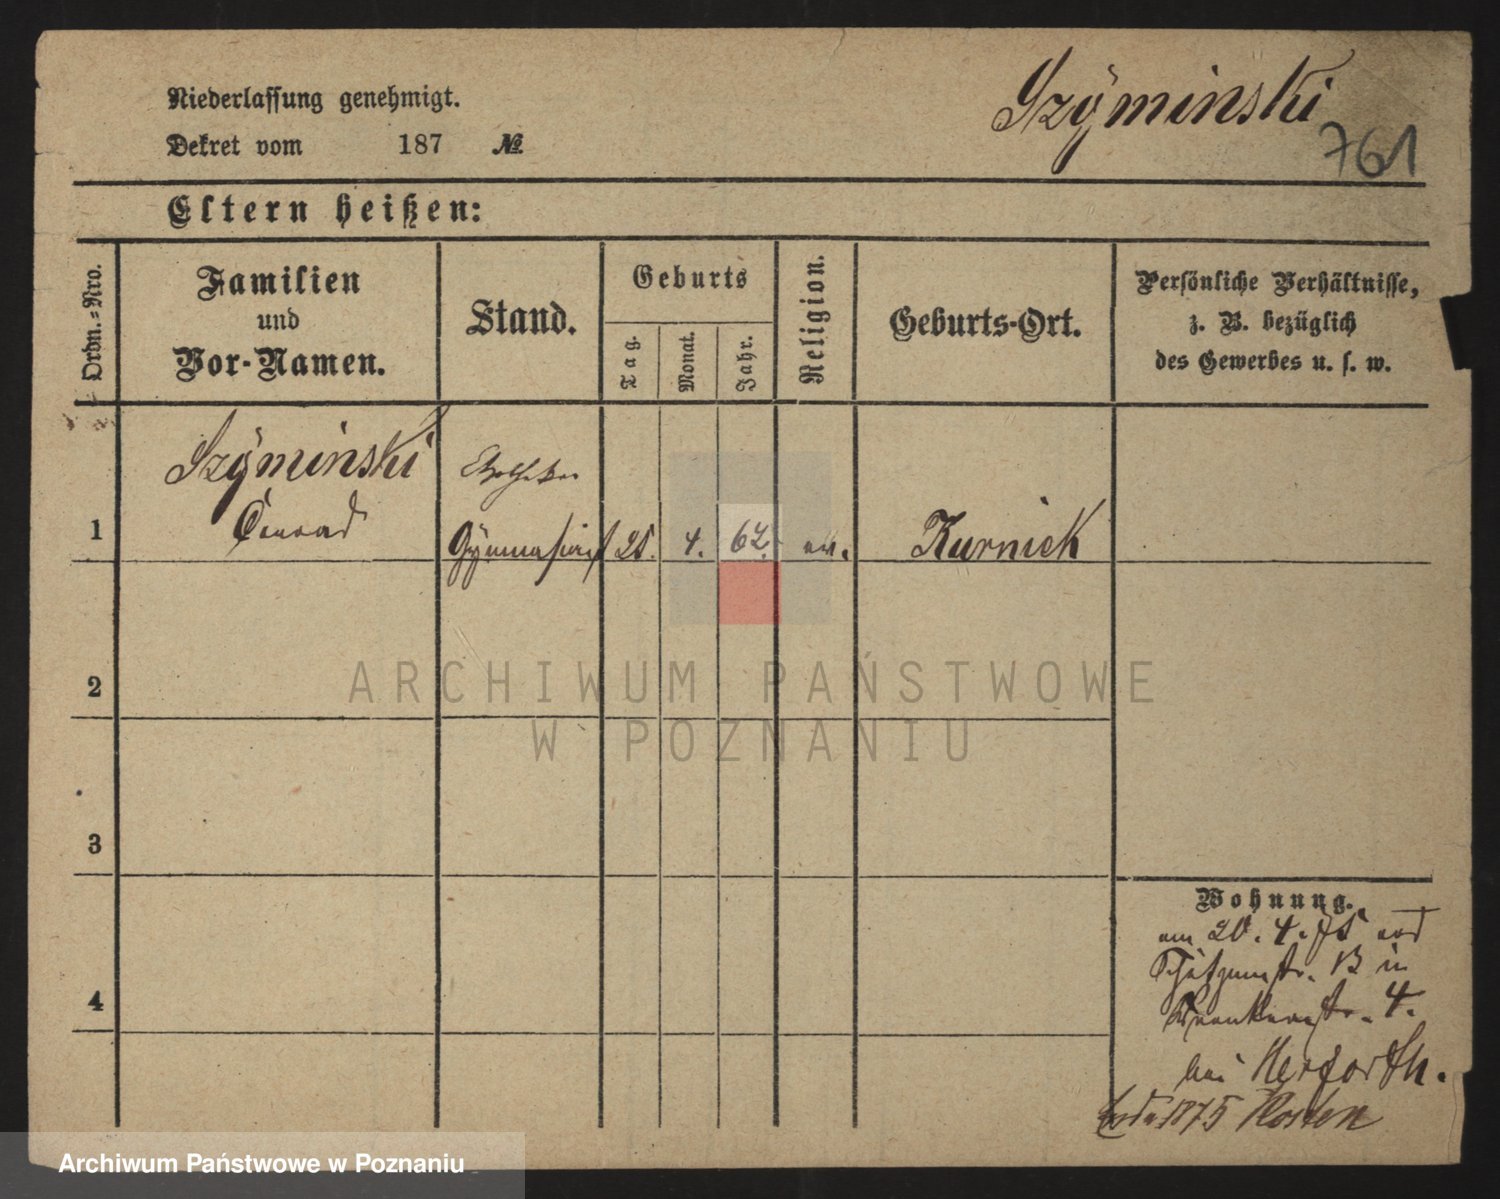 Szÿminski
761
Niederlassung genehmigt.
Dekret vom 187 №
Eltern heißen:
Ordn.=Nro.
Familien
und
Vor-Namen.
Stand.
Geburts
Tag.
Monat.
Jahr.
Religion.
Geburts-Ort.
Persönliche Verhältnisse,
z. B. bezüglich
des Gewerbes u. s. w.
1
Szÿminski
Conrad
Gÿmnasiast
25.
4.
62.
ev.
Kurnick
2
3
4
Wohnung.
am 20. 4. 75
Schützenstr. 13 in
4.
bei Herforth.
1875 Kosten
ARCHIWUM PAŃSTWOWE
W POZNANIU
Archiwum Państwowe w Poznaniu